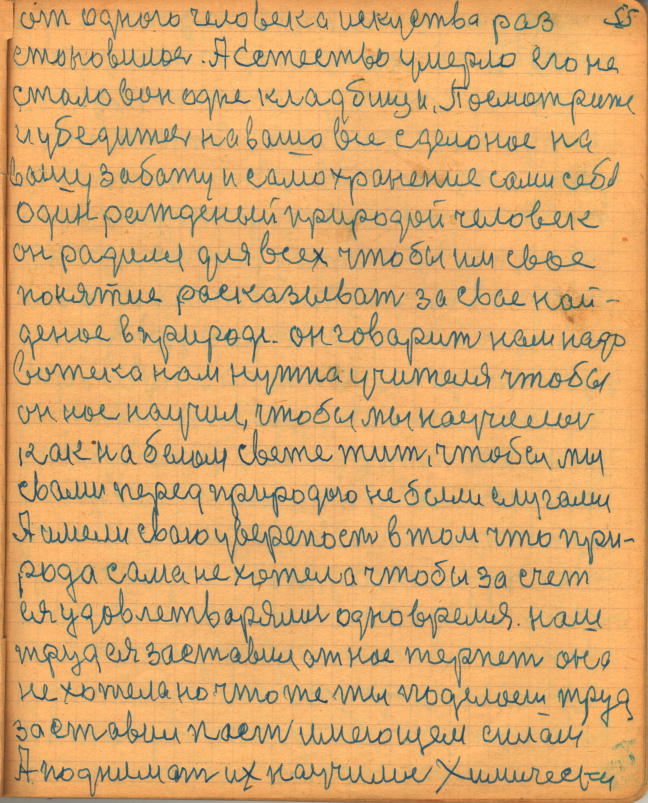 от одного человека искуства раз 55
становилось. А естество умерло его не
стало вон одне кладбищи, Посмотрите
и убедитес на вашо все сделоное на
вашу заботу и самохранение сами себя
один рожденый природой человек
он радился для всех чтобы им свое
понятие расказыват за свае най-
деное в природе. он говарит нам надо
вотека нам нужна учителя чтобы
он нас научил, чтобы мы научились
как на белом свете жит, чтобы мы
с вами перед природою не были слугами
А имели сваю увереность в том что при-
рода сама не хотела чтобы за счет
ея удовлетворяли одно время. наш
труд ея заставил от нас терпет она
не хотела но что же ты поделаеш труд
заставил паст имеющем силам
А поднимат их научились Химически